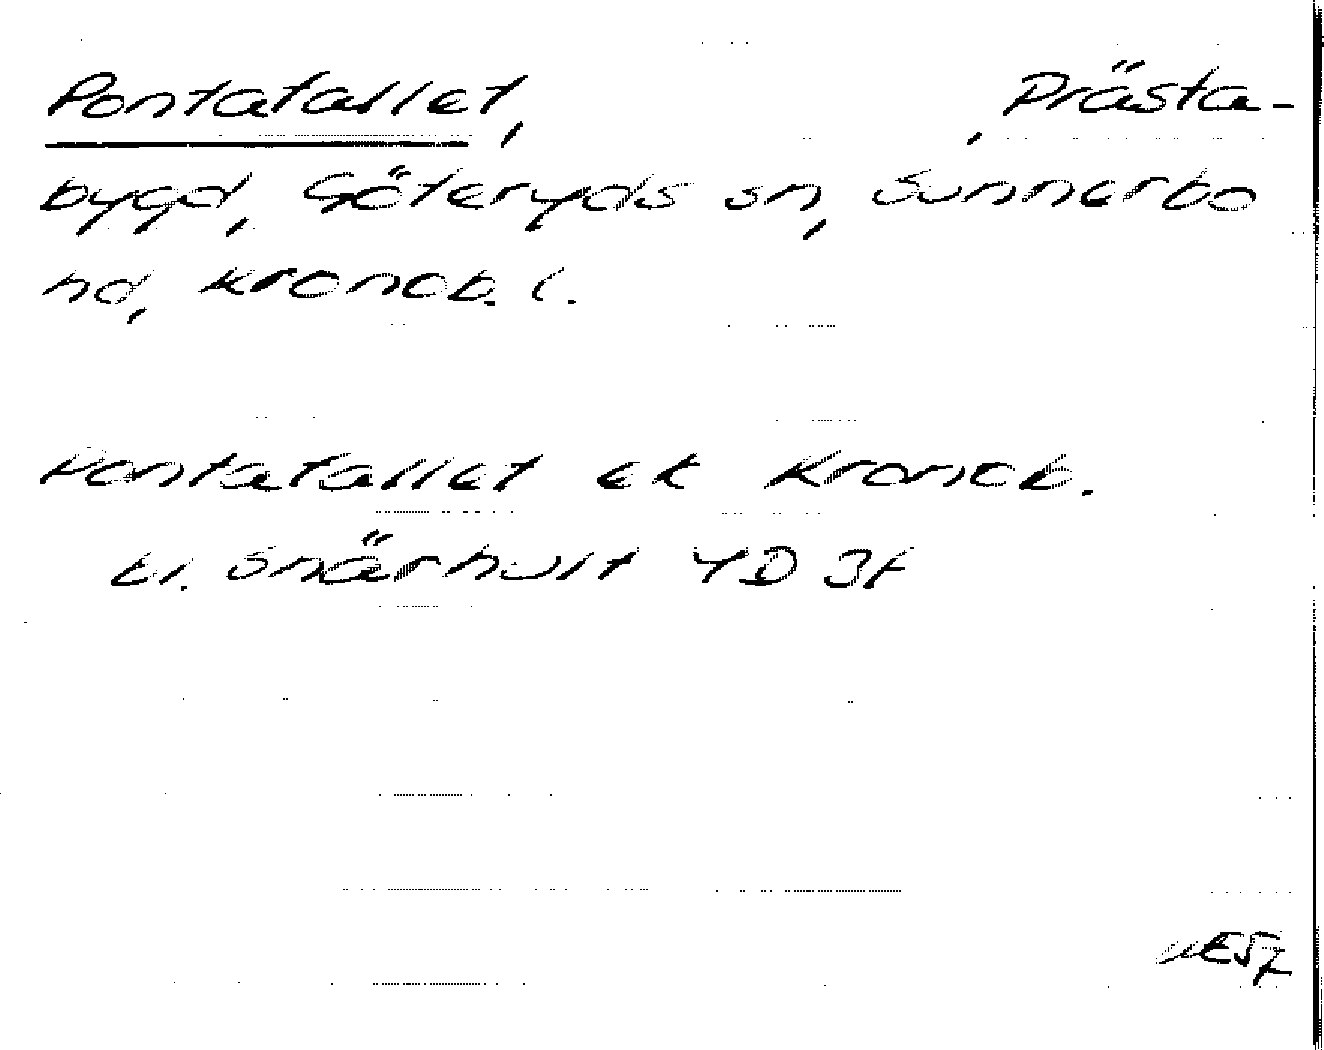 Pontatallet, , Prästa-
bygd, Göteryds sn, Sunnerbo
hd, Kronob. l.
Pontatallet ek Kronob.
bl. Snärhult 4D 3f